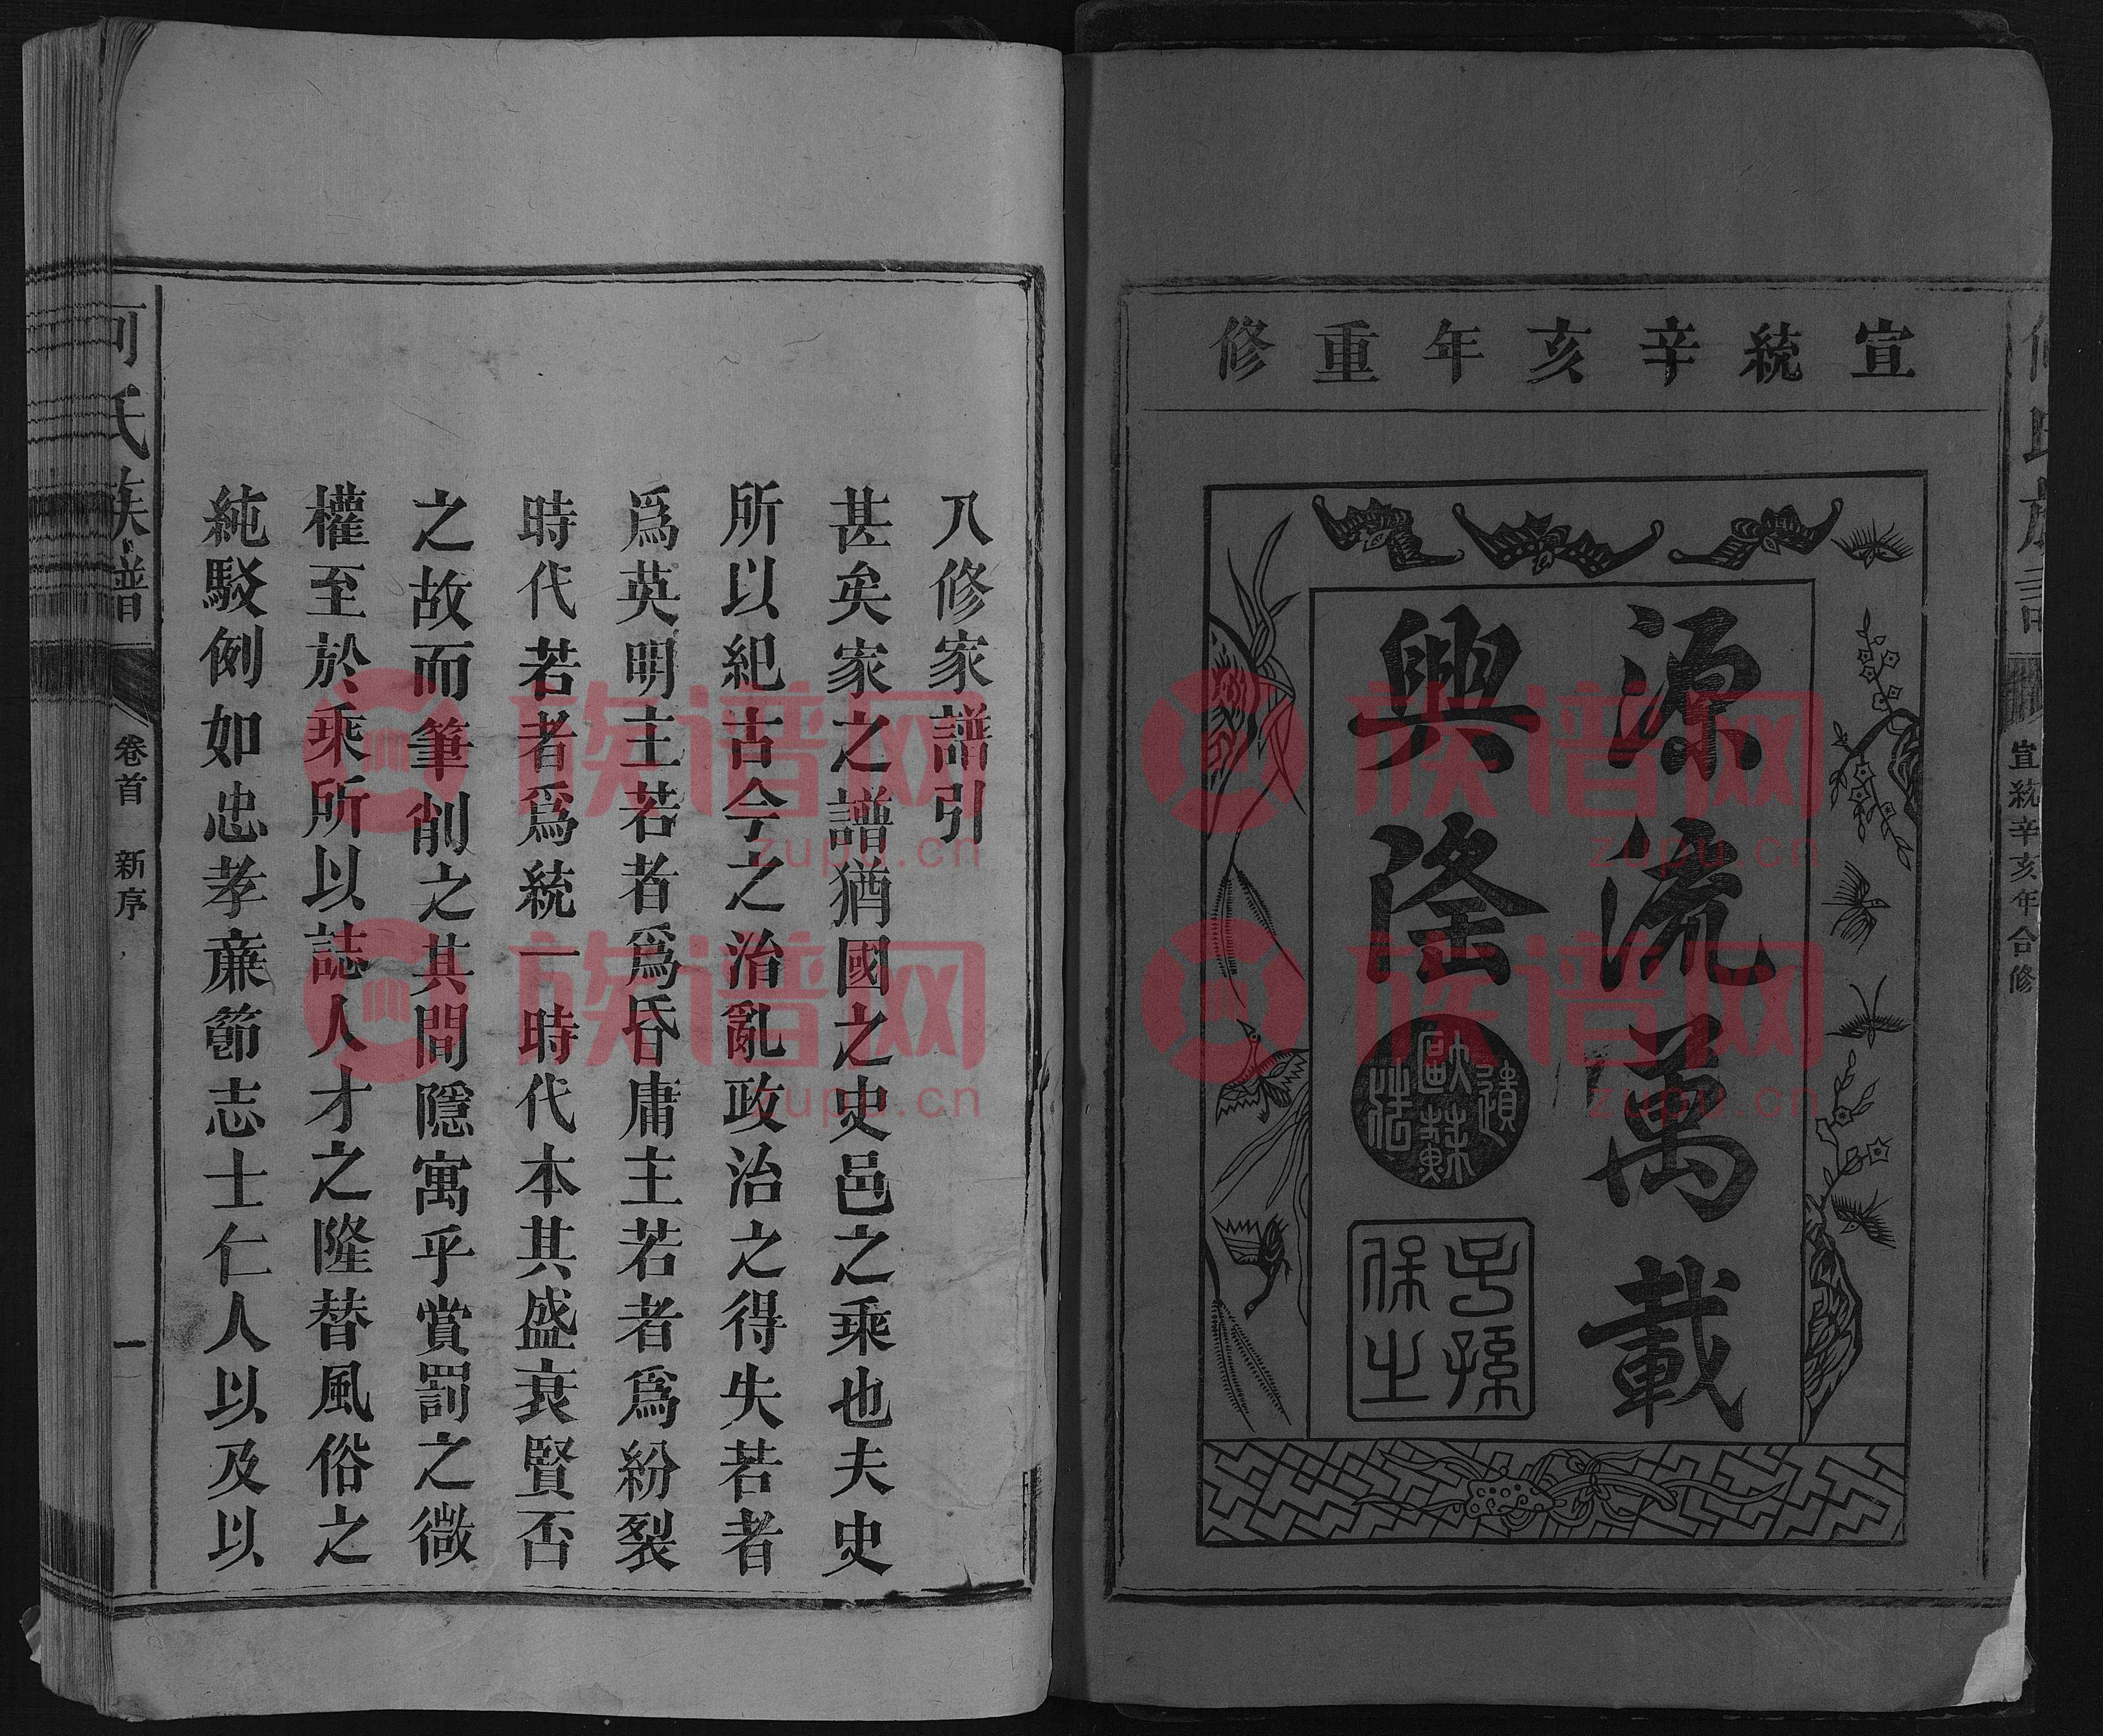 宣統辛亥年重修
源流萬載
興隆
遺歐蘇法
子孫保之
氏族譜
宣統辛亥年合修
八修家譜引
甚矣家之譜猶國之史邑之乘也夫史
所以紀古今之治亂政治之得失若者
爲英明主若者爲昏庸主若者爲紛裂
時代若者爲統一時代本其盛衰賢否
之故而筆削之其間隱寓乎賞罰之微
權至於乘所以誌人才之隆替風俗之
純駁例如忠孝亷節志士仁人以及以
何氏族譜
卷首 新序
一
族谱网
zupu.cn
族谱网
zupu.cn
族谱网
zupu.cn
族谱网
zupu.cn